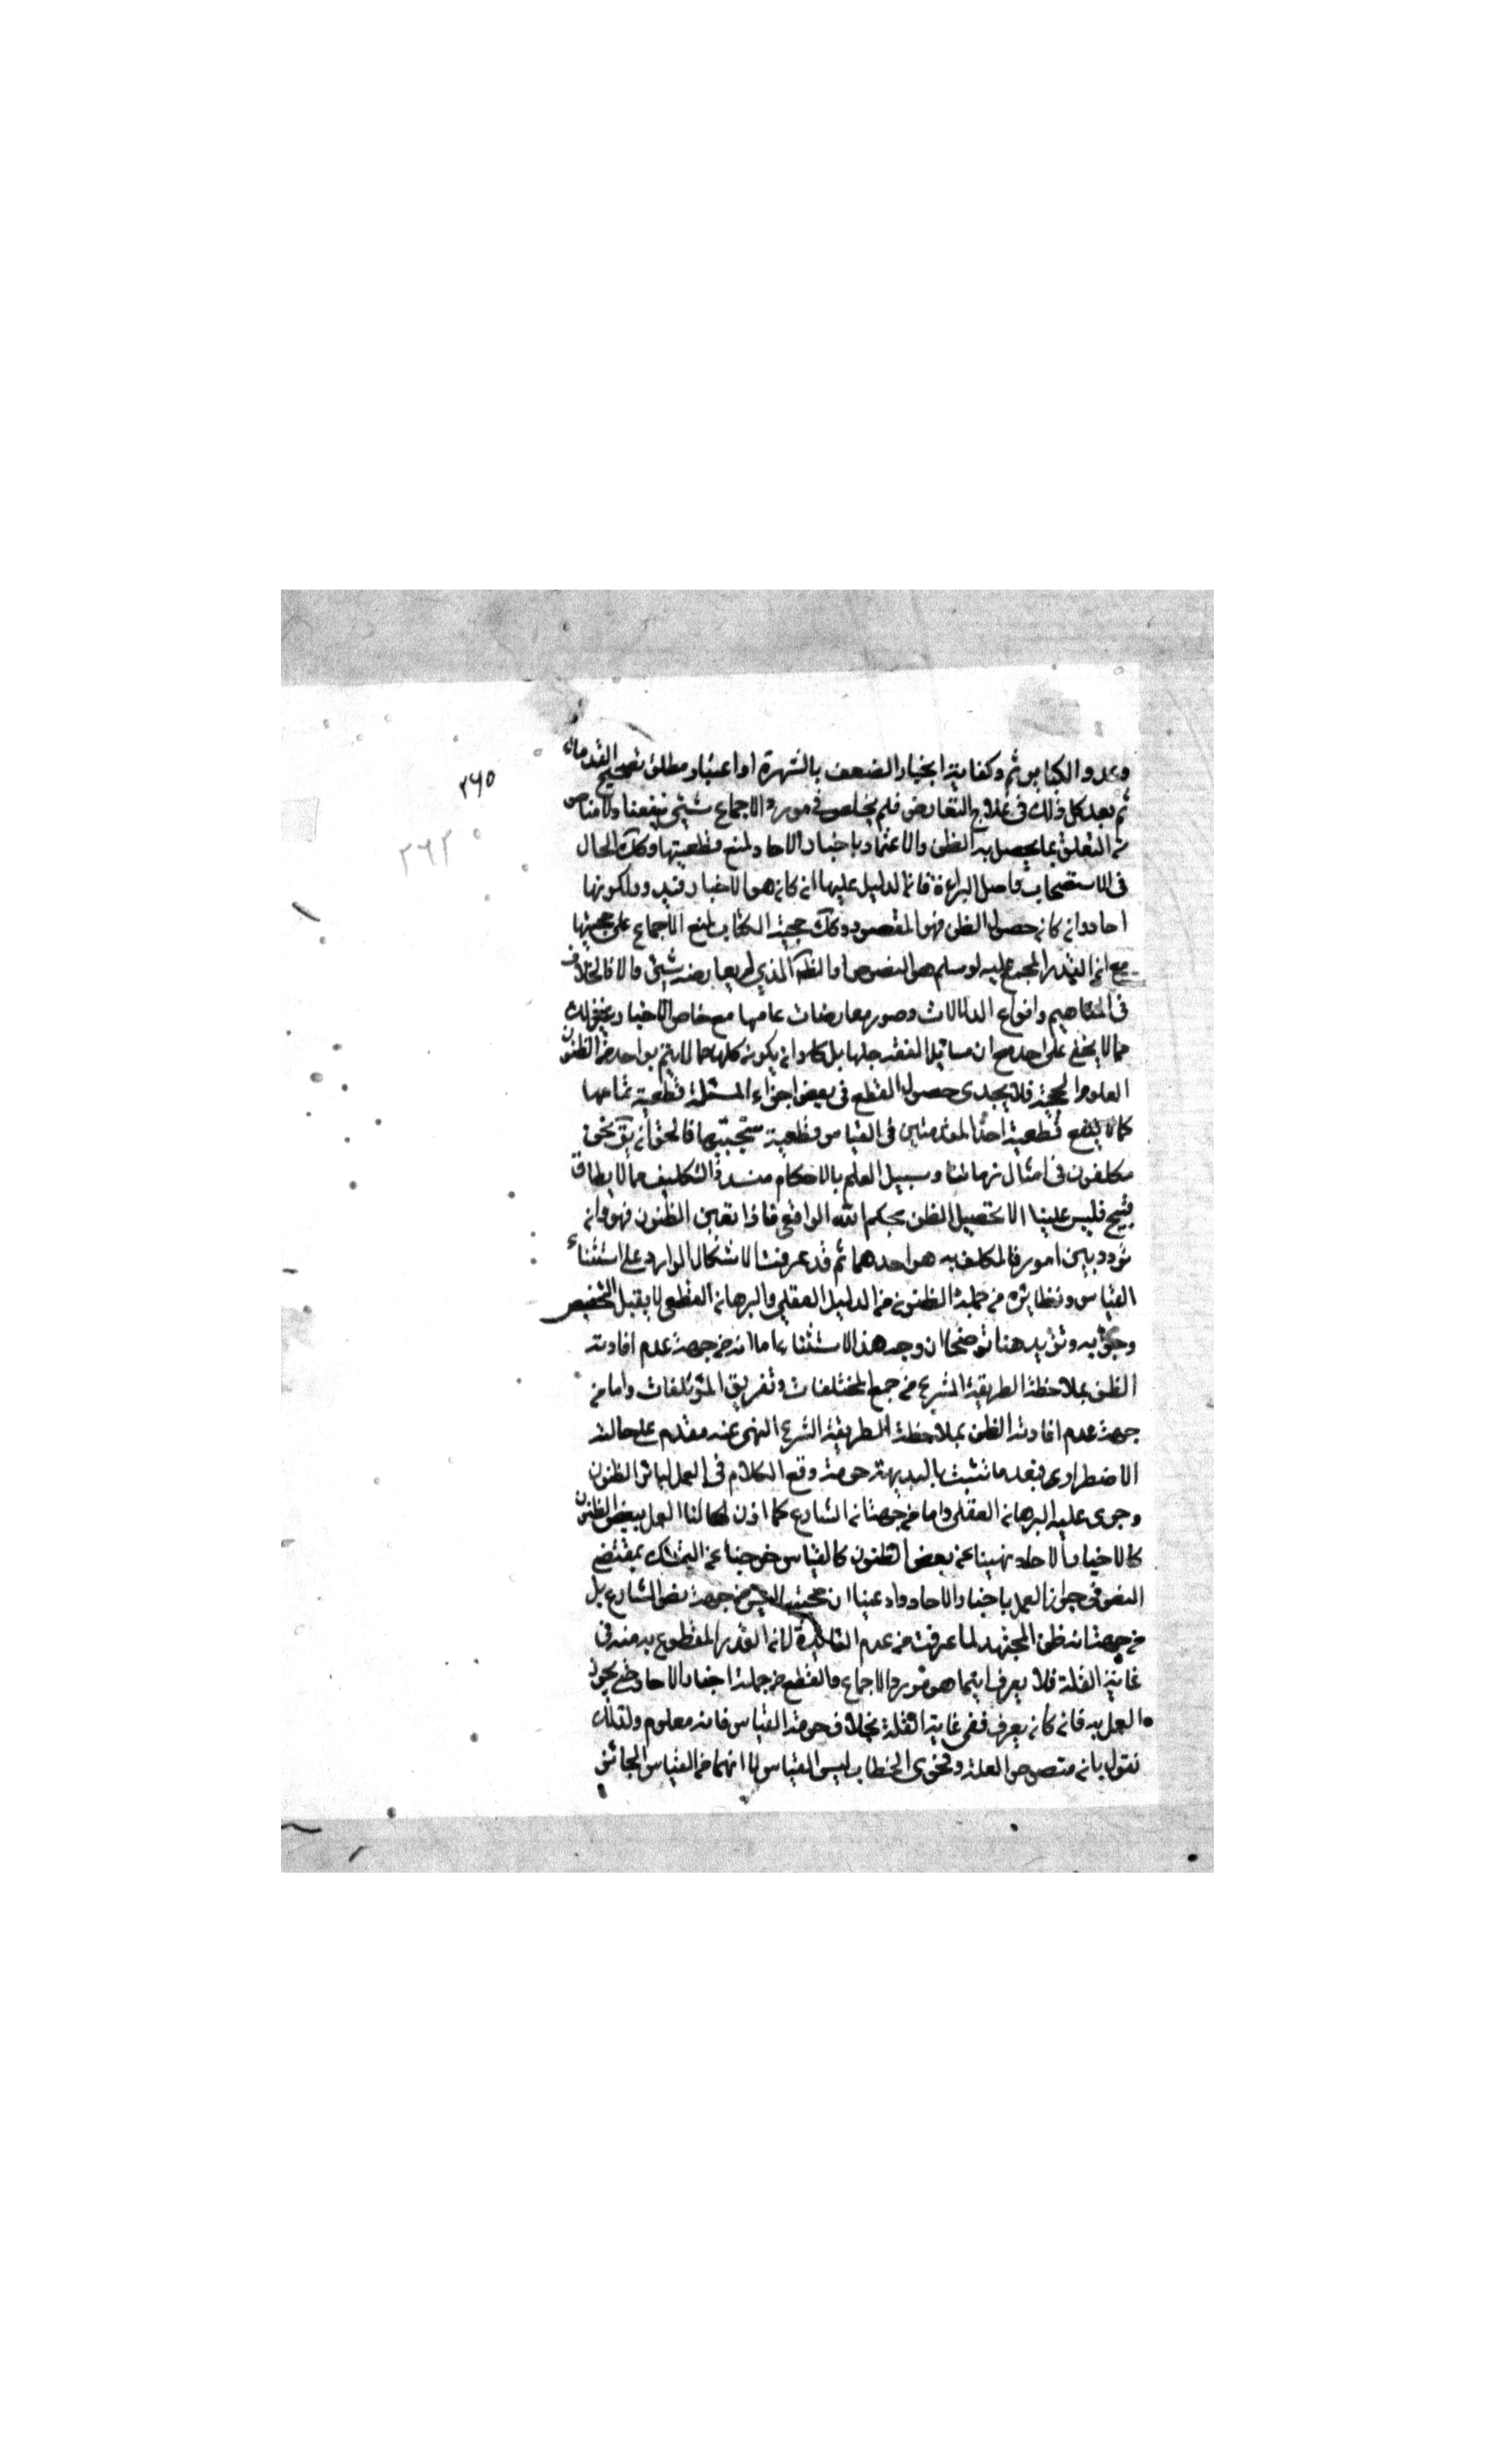 وعدو الكبائر ثم وكفاية انجبار الضعف بالشهرة او اعتبار مطلق تصحيح القدماء
ثم بعد كل ذلك فى علاج التعارض فلم يخلص فى مورد الاجماع شيئ ينفعنا ولا مناص
من التعلق بما يحصل به الظن والاعتماد باخبار الاحاد لمنع قطعيتها وكك الحال
فى الاستصحاب واصل البراءة فان الدليل عليها ان كان هو الاخبار فيدور لكونها
احاد وان كان حصول الظن فهو المقصود وكك حجية الكتاب لمنع الاجماع على حجيتها
مع ان القدر المجمع عليه لو سلم هو النصوص او الظاهر الذي لم يعارضه شيئ والا فالخلاف
فى المفاهيم وانواع الدلالات وصور معارضات عامها مع خاص الاخبار وغير ذلك
مما لا يخفى على احد مع ان مسائل الفقه جلها بل كاد ان يكون كلها مما لا يتم بواحد من الظنون
المعلوم الحجية فلا يجدى حصول القطع فى بعض اجزاء المسئلة قطعية تمامها
كما لا ينفع قطعية احد المقدمتين فى القياس قطعية نتيجتهما فالحق ان يق نحن
مكلفون فى امثال زماننا وسبيل العلم بالاحكام منسد والتكليف بما لا يطاق
قبيح فليس علينا الا تحصيل الظن بحكم الله الواقعى فاذا تعين الظنون فهو وان
تردد بين امور فالمكلف به هو احدهما ثم قد عرفت الاشكال الوارد على استثناء
القياس ونظائره من جملة الظنون من الدليل العقلى والبرهان القطعى لا يقبل التخصيص
وجوابه ونزيد هنا توضيحا ان وجه هذا الاستثناء اما انه من جهة عدم افادته
الظن بملاحظة الطريقة الشرع من جمع المختلفات وتفريق المؤتلفات واما من
جهة عدم افادته الظن بملاحظة الطريقة الشرع النهى عنه مقدم على حالته
الاضطرارى فبعد ما تثبت بالبديهة حرمته وقع الكلام فى العمل بسائر الظنون
وجرى عليه البرهان العقلى واما من جهة ان الشارع كما اذن لنا العمل ببعض الظنون
كالاخبار الاحاد نهينا عن بعض الظنون كالقياس خرجنا عن التمسك بمقتضى
النص فى جواز العمل باخبار الاحاد وادعينا ان حجيتها ليس من جهة نص الشارع بل
من جهة انه ظن المجتهد لما عرفت من عدم الفائدة لان القدر المقطوع به منه فى
غاية القلة فلا يعرف ايما هو مورد الاجماع والقطع من جملة اخبار الاحاد حتى يجوز
العمل به فان كان يعرف ففى غاية القلة بخلاف حرمة القياس فانه معلوم ولذلك
نقول بان منصوص العلة وفحوى الخطاب ليس القياس لا انهما من القياس الجائز
٢٦٥
٢٦٢